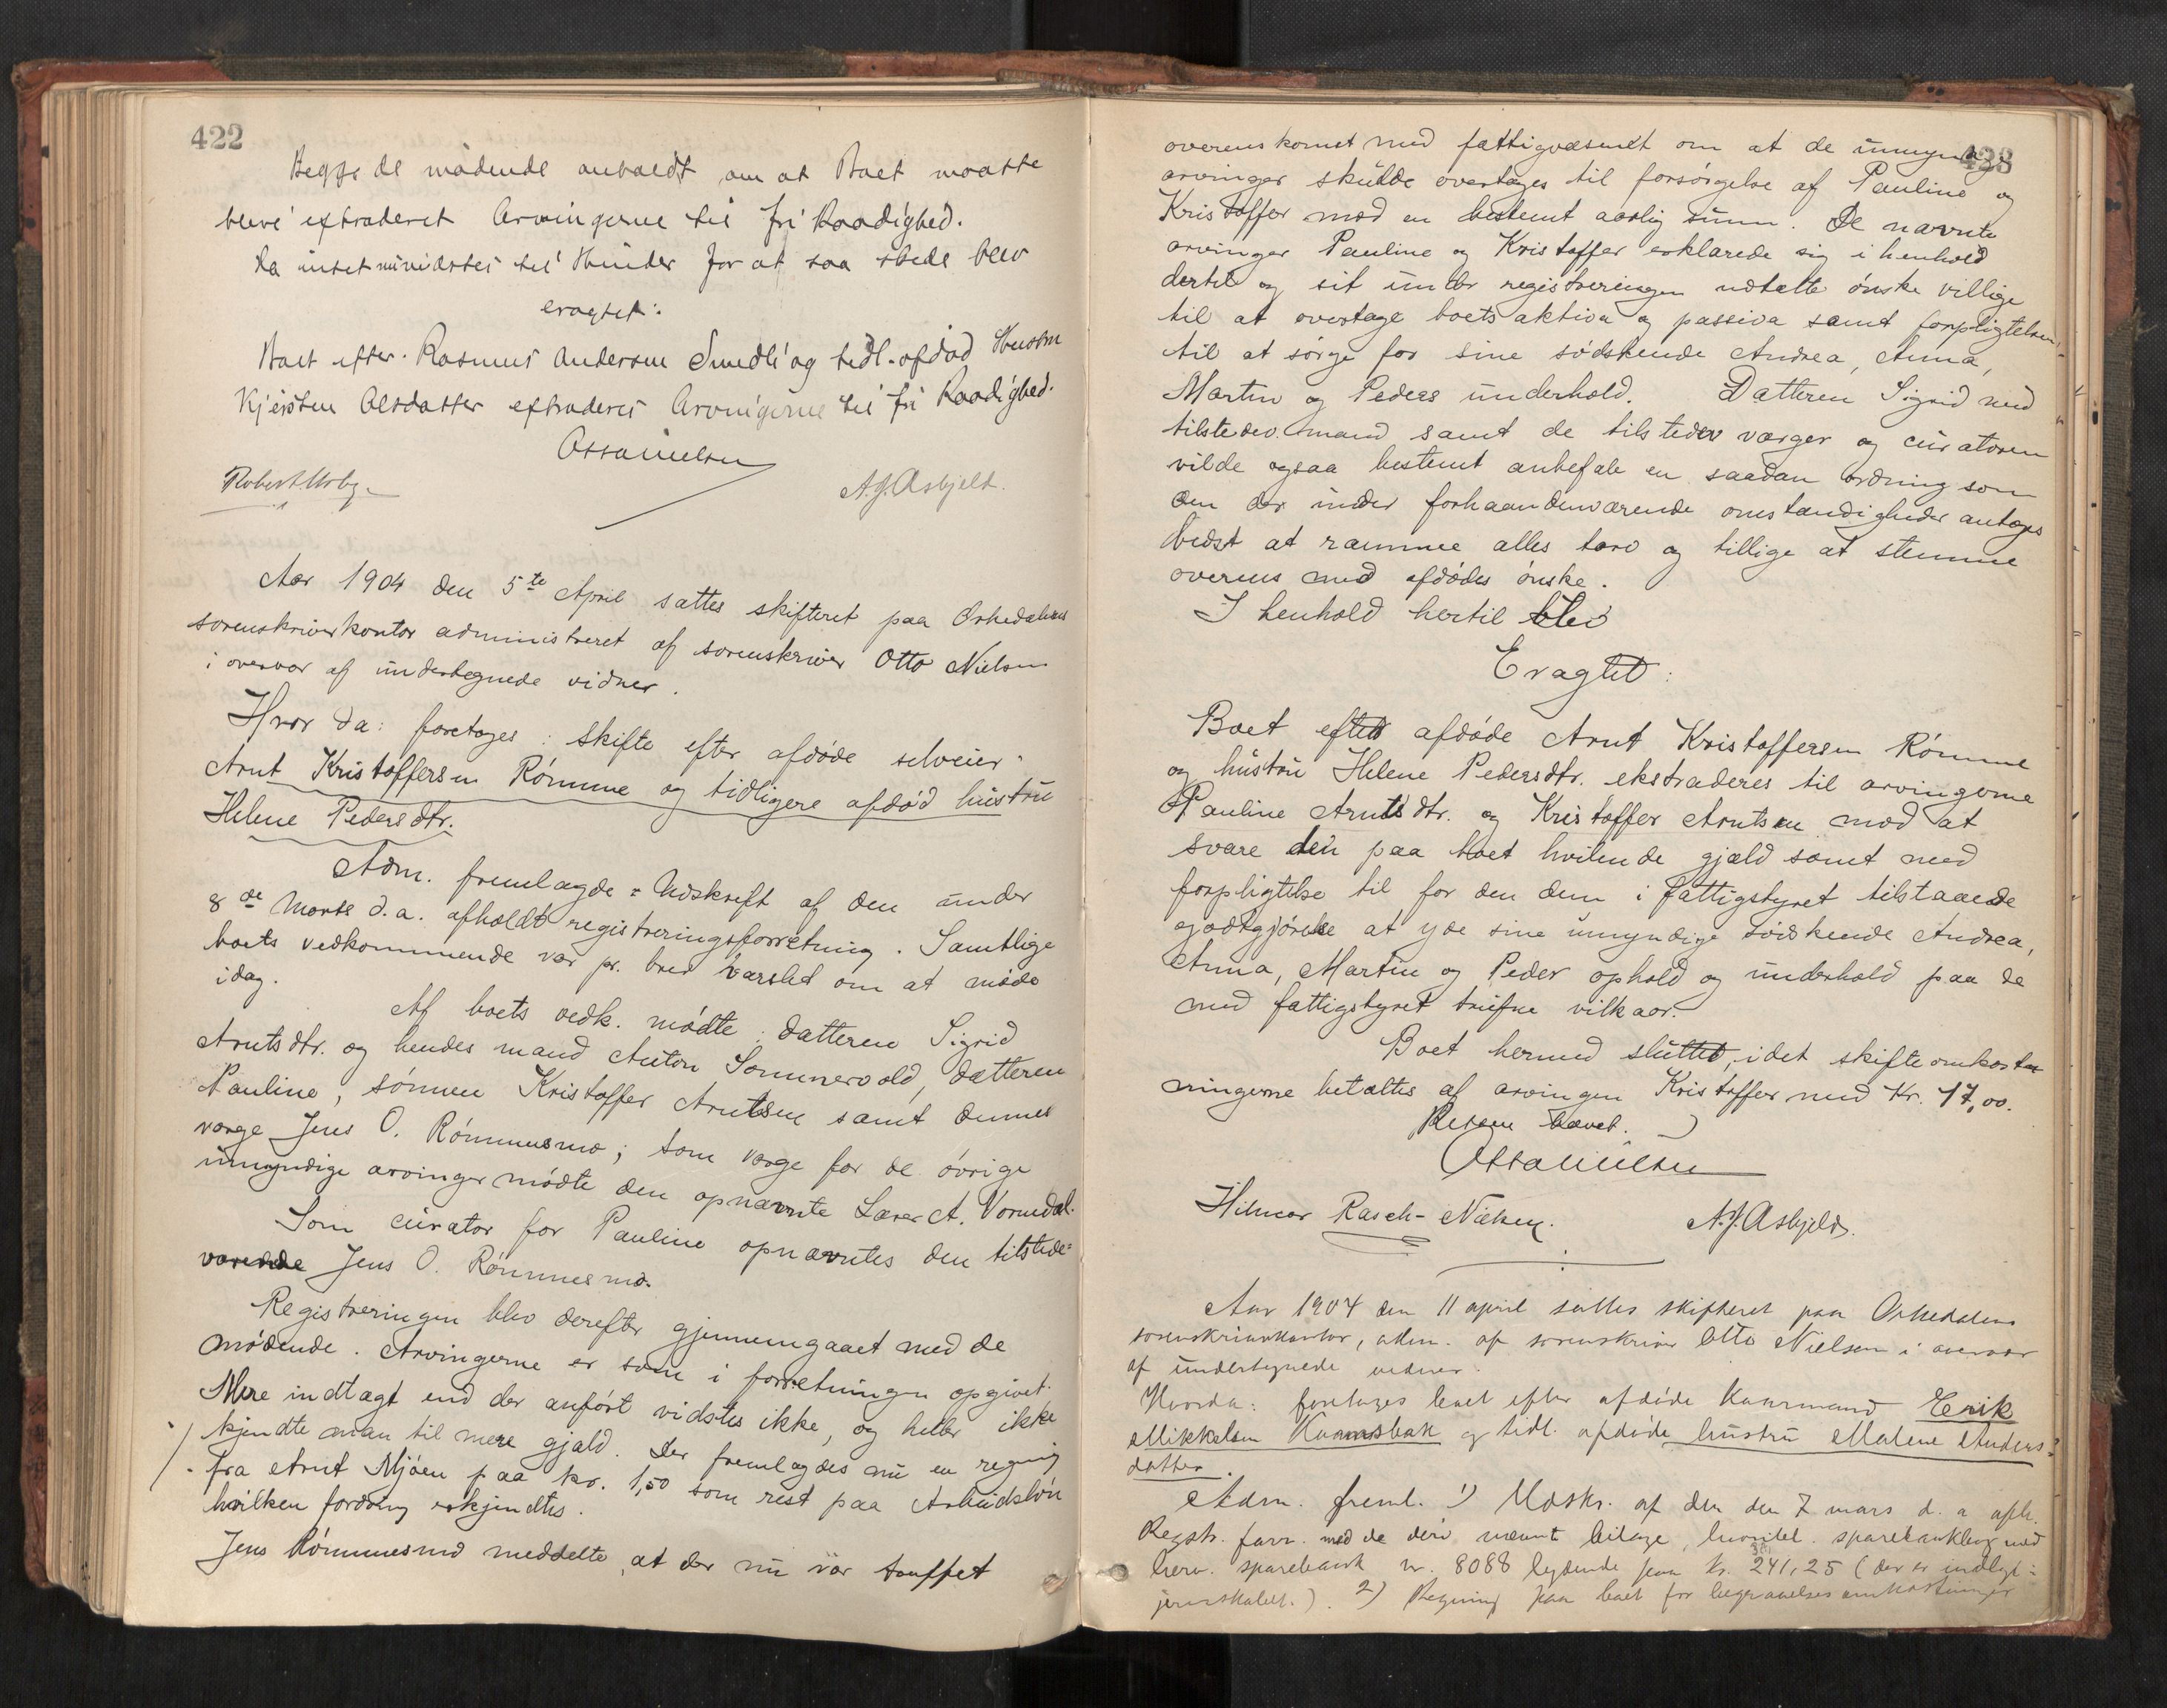 422
Begge de mødende anholdt om at Boet maatte
blive extraderet Arvingerne til fri Raadighed.
Da intet vidstes til Hinder for at saa skede blev
eragtet:
Boet efter Rasmus Andersen Smedli og tidl. afdød Hustru
Kjersten Olsdatter extraderes Arvingerne til fri Raadighed.
Otto Nielsen
A. J. Asbjeld.
Aar 1904 den 5te April sattes skifteret paa Orkedalens
sorenskriverkontor administreret af sorenskriver Otto Nielsen
i overvær af undertegnede vidner.
Hvor da: foretoges: Skifte efter afdøde selveier
Arnt Kristoffersen Rømme og tidligere afdød hustru
Helene Pedersdtr.
Adm. fremlagde: Udskrift af den under
8de Marts d.a. afholdt registreringsforretning. Samtlige
boets vedkommende var pr. brev varslet om at møde
idag.
Af boets vedk. mødte: Datteren Sigrid
Arntsdtr. og hendes mand Anton Sommervold, datteren
Pauline, sønnen Kristoffer Arntsen samt dennes
værge Jens O. Rømmesmo; som værge for de øvrige
umyndige arvinger mødte den opnævnte Lærer A. Vormdal.
Som curator for Pauline opnævntes den tilstede-
værende Jens O. Rømmesmo.
Registreringen blev derefter gjennemgaaet med de
mødende. Arvingerne er som i forretningen opgivet.
Mere indtægt end der anført vidstes ikke, og heller ikke
kjendte man til mere gjæld. Der fremlagdes nu en regning
fra Arnt Mjøen paa kr. 1,50 som rest paa Arbeidsløn
hvilken fordring erkjendtes.
Jens Rømmesmo meddelte, at der nu var truffet
423
overenskomst med fattigvæsenet om at de umyndige
arvinger skulde overtages til forsørgelse af Pauline og
Kristoffer mod en bestemt aarlig sum. De nævnte
arvinger Pauline og Kristoffer erklærede sig i henhold
dertil og sit under registreringen udtalte ønske villige
til at overtage boets aktiva og passiva samt forpligtelsen
til at sørge for sine sødskende Andrea, Anna,
Martin og Peders underhold. Datteren Sigrid med
tilstedev. mand samt de tilstedev værger og curatoren
vilde ogsaa bestemt anbefale en saadan ordning som
den der under forhaandenværende omstændigheder antages
bedst at ramme alles tarv og tillige at stemme
overens med afdødes ønske.
I henhold hertil blev
Eragtet:
Boet efter afdøde Arnt Kristoffersen Rømme
og hustru Helene Pedersdtr. ekstraderes til arvingerne
Pauline Arntsdtr. og Kristoffer Arntsen mod at
svare den paa boet hvilende gjæld samt med
forpligtelse til for den dem i fattigstyret tilstaaede
godtgjørelse at yde sine umyndige sødskende Andrea,
Anna, Martin og Peder ophold og underhold paa de
med fattigstyret trufne vilkaar.
Boet hermed sluttet, idet skifteomkost-
ningerne betaltes af arvingen Kristoffer med Kr. 17,00.
Retten hævet.
Otto Nielsen
Hilmar Rasch-Nielsen.
A. J. Asbjeld.
Aar 1904 den 11 april sattes skifteret paa Orkedalens
sorenskriverkontor, adm. af sorenskriver Otto Nielsen i overvær
af undertegnede vidner.
Hvorda: foretoges boet efter afdøde Kaarmand Erik
Mikkelsen Kaarsbak og tidl. afdøde hustru Malene Anders-
datter.
Adm. freml. 1) Udskr. af den den 7 mars d. a. afh.
Registr. forr. med de deri nævnt bilage, sparebankbog med
sparebank nr. 8088 lydende paa kr. 241,25 (der er indlagt i
jernskabet.). 2) Regning paa boet for begravelsesomkostninger